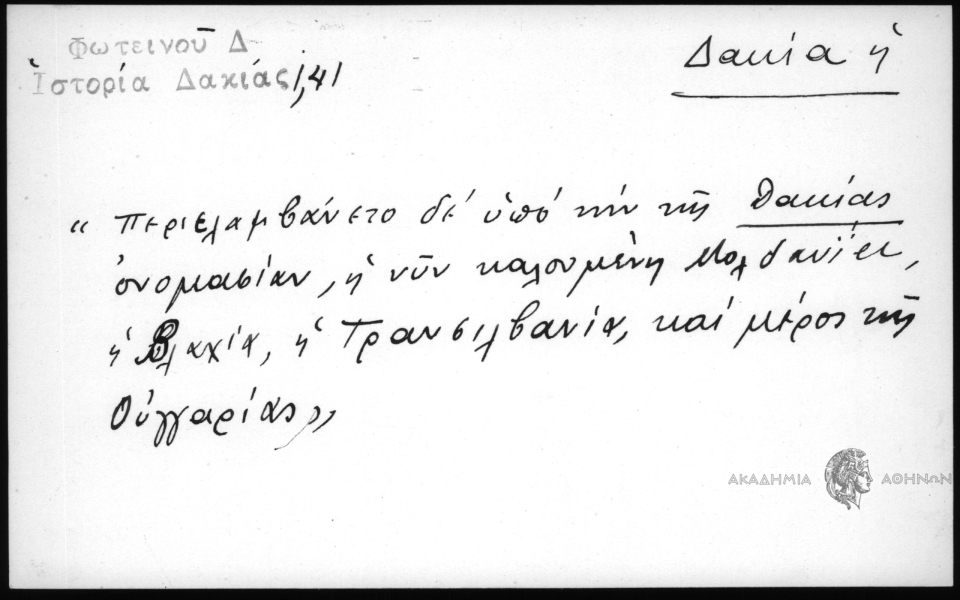 Φωτεινοῦ Δ-
Ἱστορία Δακίας 1,41
Δακία ἡ
“ περιελαμβάνετο δέ ὑπό τήν τῆς Δακίας
ὀνομασίαν, ἡ νῦν καλουμένη Μολδανία,
ἡ Βλαχία, ἡ Τρανσιλβανία, καί μέρος τῆς
Οὑγγαρίας„
ΑΚΑΔΗΜΙΑ ΑΘΗΝΩΝ